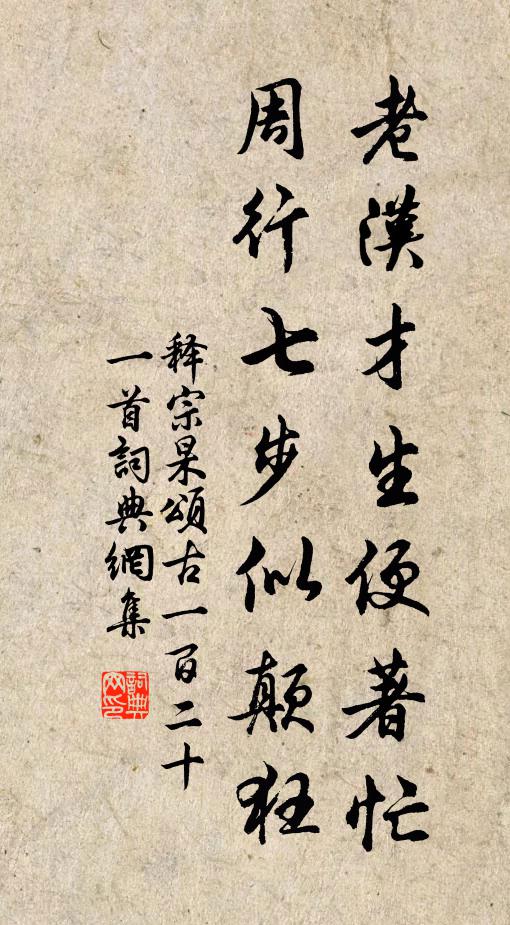 老漢才生便著忙
周行七步似顛狂
释宗杲頌古一百二十
一首詞典網集
詞典網印